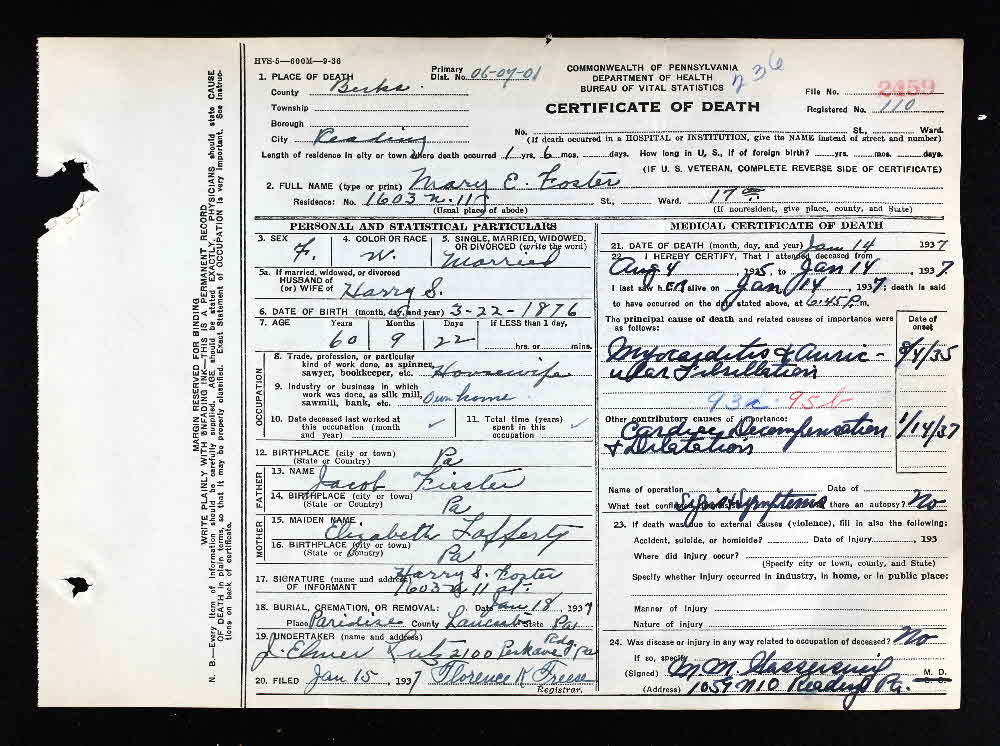 HVS-5—600M—9-36
COMMONWEALTH OF PENNSYLVANIA
DEPARTMENT OF HEALTH
BUREAU OF VITAL STATISTICS
CERTIFICATE OF DEATH
236
Primary Dist. No. 06-07-01
File No. 2459
Registered No. 110
1. PLACE OF DEATH
County Berks.
Township
Borough
City Reading
No. St., Ward.
(If death occurred in a HOSPITAL or INSTITUTION, give its NAME instead of street and number)
Length of residence in city or town where death occurred 1 yrs. 6 mos. days. How long in U. S., if of foreign birth? yrs. mos. days.
(IF U. S. VETERAN, COMPLETE REVERSE SIDE OF CERTIFICATE)
2. FULL NAME (type or print) Mary E. Foster
Residence: No. 1603 N. 11 St., Ward. 17
(Usual place of abode) (If nonresident, give place, county, and State)
PERSONAL AND STATISTICAL PARTICULARS
3. SEX F. 4. COLOR OR RACE W. 5. SINGLE, MARRIED, WIDOWED, OR DIVORCED (write the word) Married
5a. If married, widowed, or divorced
HUSBAND of
(or) WIFE of Harry S.
6. DATE OF BIRTH (month, day, and year) 3-22-1876
7. AGE Years Months Days If LESS than 1 day,
60 9 22 hrs. or mins.
OCCUPATION
8. Trade, profession, or particular
kind of work done, as spinner,
sawyer, bookkeeper, etc. Housewife
9. Industry or business in which
work was done, as silk mill,
sawmill, bank, etc. Own home
10. Date deceased last worked at this occupation (month and year) ✓
11. Total time (years) spent in this occupation ✓
12. BIRTHPLACE (city or town)
(State or Country) Pa
FATHER
13. NAME Jacob Fiester
14. BIRTHPLACE (city or town)
(State or Country) Pa
MOTHER
15. MAIDEN NAME Elizabeth Lafferty
16. BIRTHPLACE (city or town)
(State or Country) Pa
17. SIGNATURE (name and address) Harry S. Foster
OF INFORMANT 1603 N 11 St.
18. BURIAL, CREMATION, OR REMOVAL: Date Jan 18, 1937
Place Paridise County Lancaster State Pa
19. UNDERTAKER (name and address)
J. Elmer Lutz 2100 Perk ave Rdg Pa
20. FILED Jan 15, 1937 Florence K Freese
Registrar.
MEDICAL CERTIFICATE OF DEATH
21. DATE OF DEATH (month, day, and year) Jan 14 1937
22. I HEREBY CERTIFY, That I attended deceased from
Aug 4 1935, to Jan 14, 1937
I last saw her alive on Jan 14, 1937; death is said
to have occurred on the date stated above, at 6:45 P.m.
The principal cause of death and related causes of importance were as follows:
Date of onset
Myocarditis & Auric-
ular Fibrillation 8/4/35
93c 95b
Other contributory causes of importance:
Cardiac Decompensation 1/14/37
& Dilatation
Name of operation Date of
What test confirmed Signs & Symptoms there an autopsy? No
23. If death was due to external causes (violence), fill in also the following:
Accident, suicide, or homicide? Date of Injury , 193
Where did injury occur?
(Specify city or town, county, and State)
Specify whether injury occurred in industry, in home, or in public place:
Manner of Injury
Nature of injury
24. Was disease or injury in any way related to occupation of deceased? No
If so, specify
(Signed) M. M. M. D.
(Address) 1059 N 10 Reading Pa.
MARGIN RESERVED FOR BINDING
WRITE PLAINLY WITH UNFADING INK—THIS IS A PERMANENT RECORD
N. B.—Every item of information should be carefully supplied. AGE should be stated EXACTLY. PHYSICIANS should state CAUSE
OF DEATH in plain terms, so that it may be properly classified. Exact Statement of OCCUPATION is very important. See instruc-
tions on back of certificate.